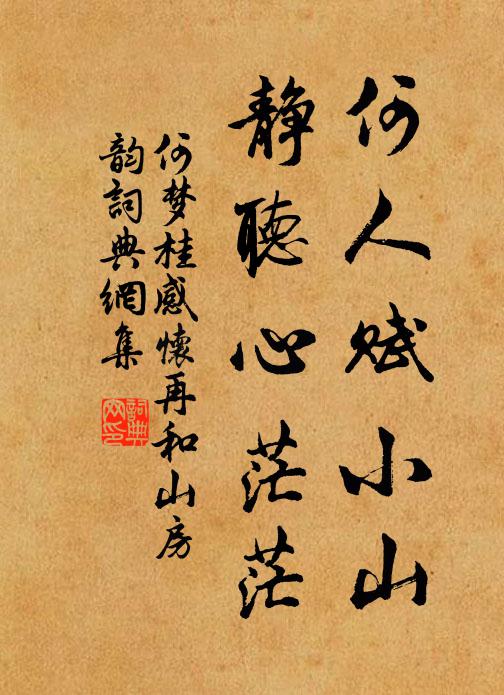 何人赋小山
静聽心茫茫
何梦桂感懷再和山房
韵詞典網集
詞典網印